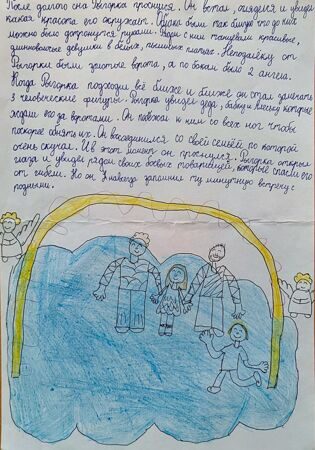 После долгого сна Рыгорка проснулся. Он встал, огляделся и увидел
какая красота его окружает. Облака были так близко что до них
можно было дотронуться руками. Рядом с ним танцевали красивые,
длинноволосые девушки в белых, пышных платьях. Неподалёку от
Рыгорки были золотые ворота, а по бокам было 2 ангела.
Когда Рыгорка подходил всё ближе и ближе он стал замечать
3 человеческие фигуры. Рыгорка увидел деда, бабку и Алеську которые
ждали его за воротами. Он побежал к ним со всех ног чтобы
поскорее обнять их. Он воссоединился со своей семьёй, по которой
очень скучал. И в этот момент он проснулся. Рыгорка открыл
глаза и увидел рядом своих боевых товарищей, которые спасли его
от гибели. Но он навсегда запомнил ту минутную встречу с
родными.